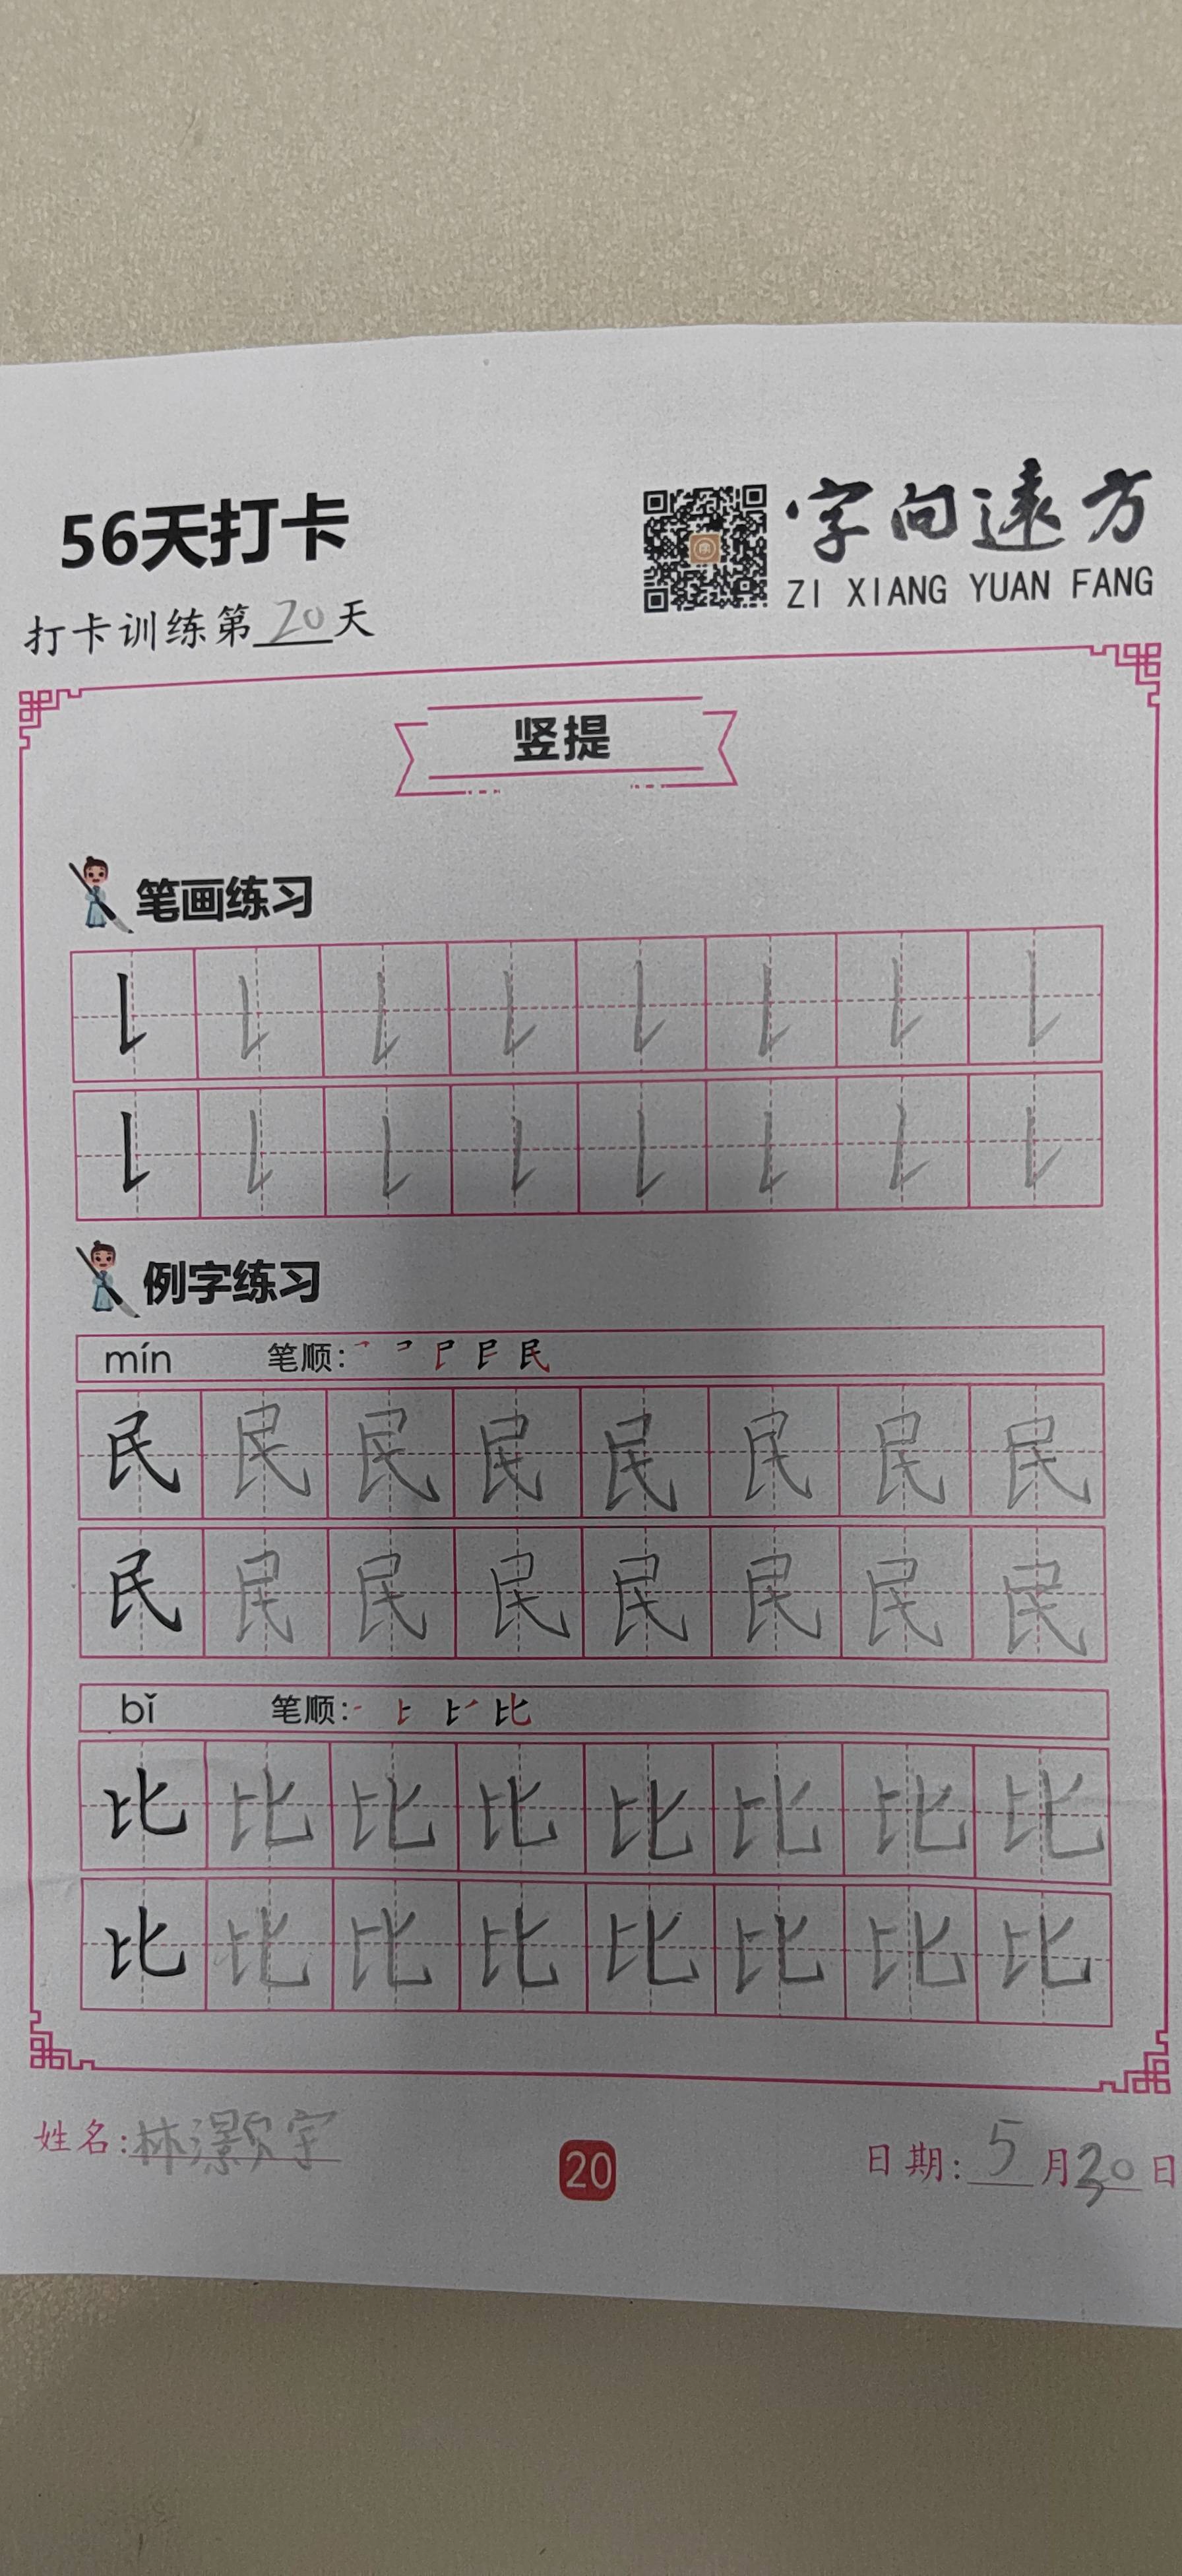 56天打卡
字向遠方
ZI XIANG YUAN FANG
打卡训练第20天
竖提
笔画练习
例字练习
mín 笔顺:
民民民民民民民民
民民民民民民民民
bǐ 笔顺:
比比比比比比比比
比比比比比比比比
姓名:林灏宇
20
日期:5月20日